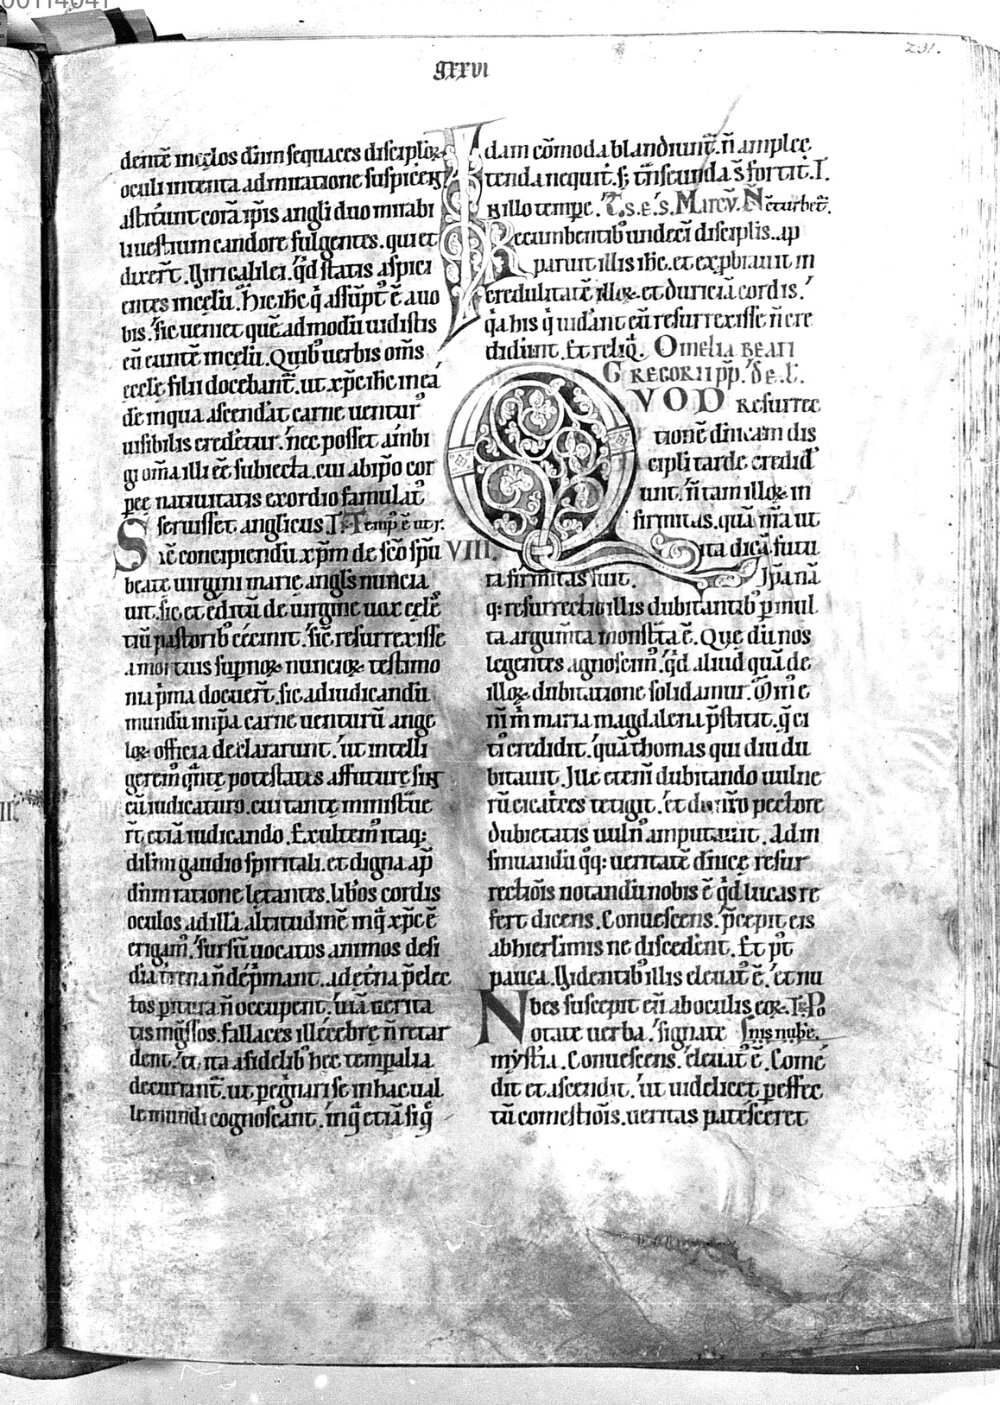 gxxvi
231.
dentē incęlos dn̄m sequaces disciplōꝝ
oculi intenta admiratione suspicerēt
astiterunt corā ip̄is angli duo mirabi
li uestium candore fulgentes. qui et
dixert̄. Viri galilei. qͥd statis aspici
entes incelū. Hic ihc̄ qͥ assūpt᷒ ē a uo
bis. sic ueniet quēadmodū uidistis
eū euntē incęlū. Quib᷒ uerbis om̄s
ecclę filii docebant̄. ut xp̄c ihc̄ in eā
dē inqua ascend̄at carne uentur᷒
uisibilis credēt̄ur. nec posset ambi
gi om̄a illi eē subiecta. cui abip̄o cor
poreę natiuitatis exordio famulat᷒
seruisset anglicus
Sic concipiendū xp̄m de sc̄o sp̄u VIII.
beatę uirgini marię angl̄s nuncia
uit. sic et editū de uirgine uox cęlē
tiū pastorib᷒ cecinit. sic resurrexisse
a mortuis supnoꝝ nuncioꝝ testimo
nia pͥma docuert̄. sic adiudicandū
mundū inip̄a carne uenturū ange
loꝝ officia declararunt. ut intelli
gerem᷒ qͣntę potestatis affuture sint
cū iudicaturo. cui tantę ministrāue
rt̄ etiā iudicando. Exultem᷒ itaq;
dil̄mi gaudio spiritali. et digna ap̄
dn̄m ratione lętantes. lib̄os cordis
oculos ad illā altitudinē inqͣ xp̄c ē
erigam᷒. sursū uocatos animos desi
dia terrena n̄ depͥmant. ad et̄na p̄elec
tos peritura n̄ occupent. uiā uerita
tis ingͬssos. fallaces illecebrę n̄ retar
dent. et ita a fidelib᷒ hec temporalia
decurrant̄. ut pegͥnari se inhac ual
le mundi cognoscant. inqͣ etiā siqͣ
dam cōmoda blandiunt̄. n̄ amplec
tenda nequit̄. sꝫ tn̄seunda s̄ fortit̄.
Iɴ illo tempe. Marcv.
Recumbentib᷒ undeci discip̄lis. ap
paruit illis ihc̄. et exp̄brauit in
credulitatē illoꝝ. et duriciā cordis.
qͥa his qͥ uiderant eū resurrexisse n̄ cre
diderunt. Et reliqͣ. Omelia beati
Gregorii pp̄. de l.
QVOD resurrec
tionē dn̄icam dis
cipli tarde credid᷒
runt. n̄ tam illoꝝ in
firmitas. quā nr̄a ut
ita dicā futu
ra firmitas fuit. Ip̄a nā
q; resurrectio illis dubitantib᷒ p mul
ta argum̄ta monstrata ē. Quę dū nos
legentes agnoscim᷒. qͥd aliud quā de
illoꝝ dubitatione solidamur. Min᷒ e
nī m̄ maria magdalena p̄stitit. quę ci
ti᷒ credidit. quā thomas qui diu du
bitauit. Ille etenī dubitando uulne
rū cicatrices tetigit. et de nr̄o pectore
dubietatis uuln᷒ amputauit. Ad in
sinuandū qͦq; ueritatē dn̄icę resur
rectiōis notandū nobis ē qͥd lucas re
fert dicens. Conuescens. p̄cepit eis
ab hierl̄imis ne discedent̄. Et pͦt
pauca. Videntib᷒ illis eleuat᷒ ē. et nu
Nbes suscepit eū aboculis eoꝝ.
otate uerba. signate
mystia. Conuescens. eleuat᷒ ē. Comē
dit et ascendit. ut uidelicet p effec
tū comestiōis. ueritas patesceret